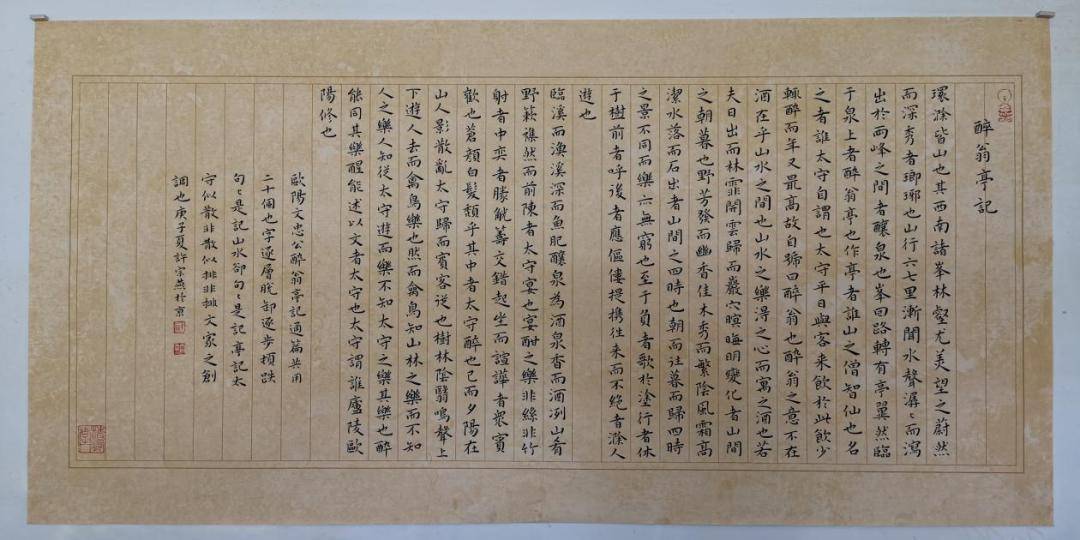 醉翁亭記
環滁皆山也其西南諸峯林壑尤美望之蔚然
而深秀者瑯琊也山行六七里漸聞水聲潺〻而瀉
出於兩峰之間者釀泉也峯回路轉有亭翼然臨
于泉上者醉翁亭也作亭者誰山之僧智仙也名
之者誰太守自謂也太守平日與客来飲於此飲少
輒醉而年又最高故自號曰醉翁也醉翁之意不在
酒在乎山水之間也山水之樂得之心而寓之酒也若
夫日出而林霏開雲歸而巖穴暝晦明變化者山間
之朝暮也野芳發而幽香佳木秀而繁陰風霜高
潔水落而石出者山間之四時也朝而往暮而歸四時
之景不同而樂亦無窮也至于負者歌於塗行者休
于樹前者呼後者應傴僂提攜往来而不絶者滁人
遊也
臨溪而漁溪深而魚肥釀泉為酒泉香而酒洌山肴
野蔌襍然而前陳者太守宴也宴酣之樂非絲非竹
射者中奕者勝觥籌交錯起坐而諠譁者衆賓
歡也蒼顏白髮頹乎其中者太守醉也已而夕陽在
山人影散亂太守歸而賓客從也樹林陰翳鳴聲上
下遊人去而禽鳥樂也然而禽鳥知山林之樂而不知
人之樂人知從太守遊而樂不知太守之樂其樂也醉
能同其樂醒能述以文者太守也太守謂誰廬陵歐
陽修也
歐陽文忠公醉翁亭記通篇共用
二十個也字逐層脱卸逐步頓跌
句〻是記山水却句〻是記亭記太
守似散非散似排非排文家之創
調也庚子夏許宗燕於京